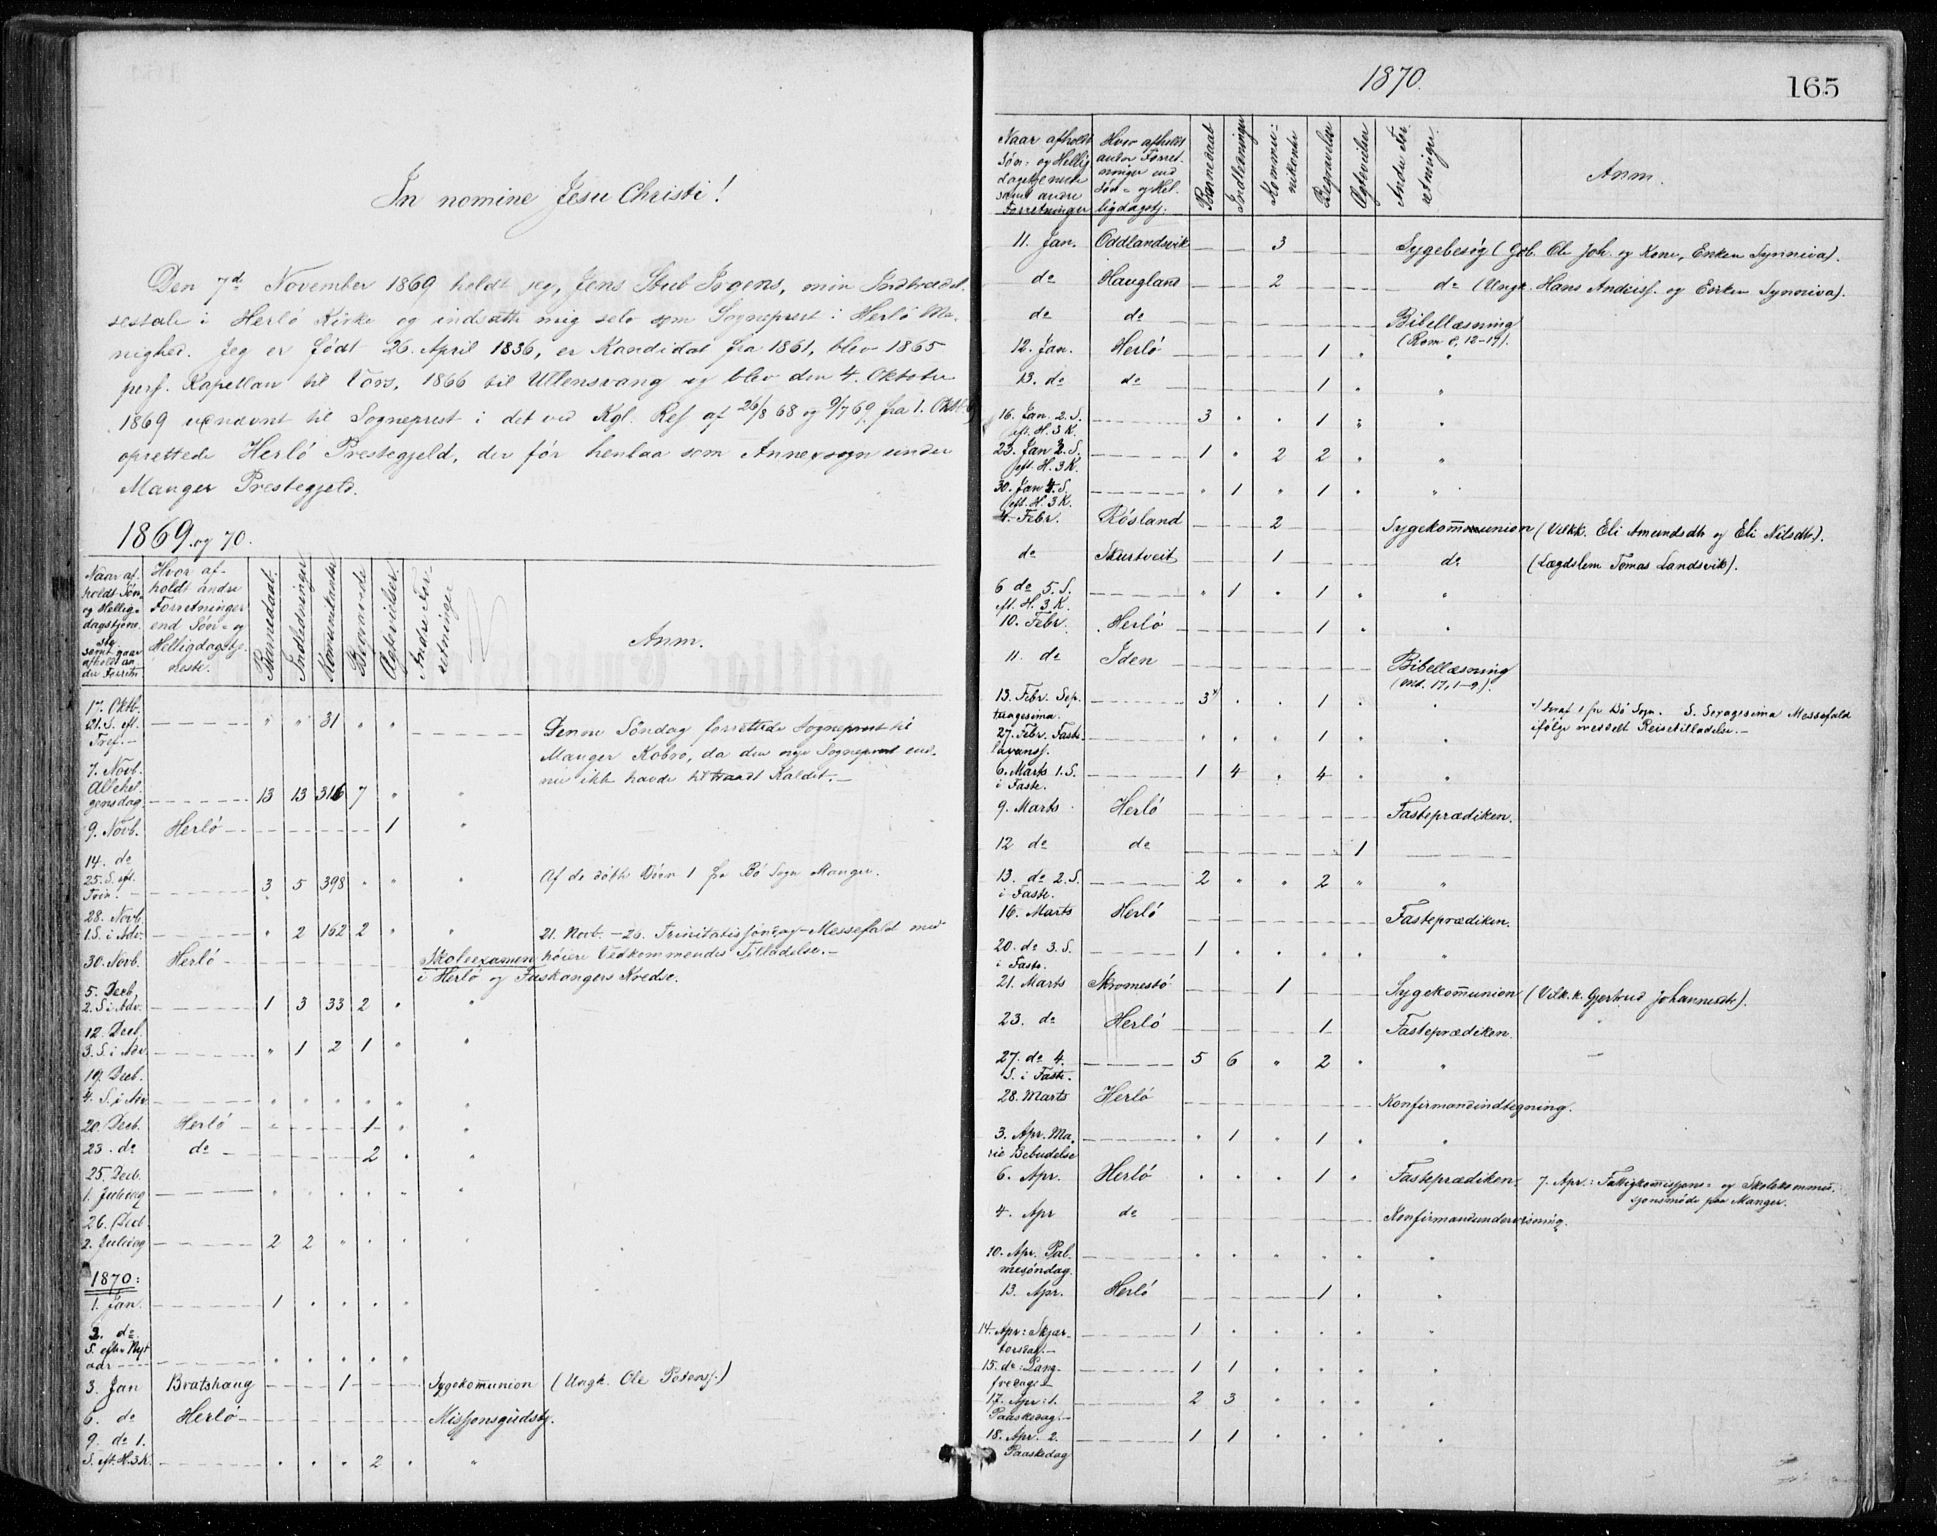 In nomine Jesu Christi!
Den 7de November 1869 holdt jeg, Jens Stub Irgens, min Indtrædel-
sestale i Herlö Kirke og indsatte mig selv som Sogneprest i Herlö Me-
nighed. Jeg er födt 26. April 1836, er Kandidat fra 1861, blev 1865
pers. Kapellan til Vors, 1866 til Ullensvang og blev den 4. Oktober
1869 udnævnt til Sogneprest i det ved Kgl. Res af 26/8 68 og 9/7 69, fra 1. Oktb.
oprettede Herlö Prestegjeld, der för henlaa som Annexsogn under
Manger Prestegjeld.
1869. og 70.
Naar af- holdt Søn- og Hellig- dagstjene- ste samt naar afholdt an- dre Forretn. | Hvor af- holdt andre Forretninger end Søn- og Helligdagstj- neste. | Barnedaab. | Indledninger | Kommunikanter | Begravede | Ægtevielser | Andre For- retninger | Anm.
17. Oktb. 21. S. eft. Tref. – " " 31 " " Denne Söndag forrettede Sogneprest til
Manger Kobro, da den nye Sogneprest end-
nu ikke havde tiltraadt Kaldet. –
7. Novb. Allehel- gensdag. 13 13 316 7 " "
9. Novb. Herlö 1 "
14. do 25. S. eft. Trin. 3 5 398 " " " Af de döbte Börn 1 fra Bö Sogn Manger.
28. Novb. 1. S. i Adv. " 2 162 2 " " 21. Novb. – 26. Trinitatissöndag – Messefald med
höiere Vedkommendes Tilladelse. –
30. Novb. Herlö Skoleexamen
i Herlö og Fuskangers Kredse.
5. Decb. 2. S. i Adv. 1 3 33 2 " "
12. Decb. 3. S. i Adv. " 1 2 1 " "
19. Decb. 4. S. i Adv. " " " " " "
20. Decb. Herlö 1 " "
23. do do 2 " "
25. Decb. 1. Juledag " " " " " "
26. Decb. 2. Juledag 2 2 " " " "
1870:
1. Jan. 1 " " " "
2. do S. efter Nyt- aar " " " " "
3. Jan Bratshaug 1 Sygekommunion (Ungk. Ole Petersf.)
6. do Herlö Misjonsgudstj.
9. do 1. S. eft. H. 3 K. " " " 2 " "
1870.
165
Naar afholdt Søn- og Hellig- dagstjeneste samt andre Forretninger | Hvor afholdt andre Forret- ninger end Søn- og Hel- ligdagstj. | Barnedaab | Indledninger | Kommu- nikanter | Begravelser | Ægtevielser | Andre For- retninger. | Anm.
11. Jan. Oddlandsvik 3 Sygebesög (Gdb. Ole Joh. og Kone, Enken Synniva).
do Haugland 2 do (Ungk. Hans Andersf. og Enken Synniva).
do do Bibellæsning
(Rom 8, 12–19).
12. Jan. Herlö 1 " "
13. do do 1 " "
16. Jan. 2. S. eft. H. 3 K. 3 " " 1 " "
23. Jan 3. S. eft. H. 3 K. 1 " 2 2 " "
30. Jan 4. S. eft. H. 3 K. " 1 " 1 " "
4. Febr. Rösland 2 Sygekommunion (Ved Kk. Eli Amundsdtr og Eli Nilsdtr).
do Skurtveit 1 do (Lægdslem Tomas Landsvik).
6 do 5. S. eft. H. 3 K. " 1 " 1 " "
10. Febr. Herlö 1 " "
11. do Iden Bibellæsning
(Mt. 17, 1–9).
13. Febr. Sep- tuagesima. 3*) " " 1 " " *) Deraf 1 fra Bö Sogn. S. Sexagesima Messefald
ifölge meddelt Reisetilladelse. –
27. Febr. Faste- lavenss. " " " 1 " "
6. Marts 1. S. i Faste. 1 4 " 4 " "
9. Marts Herlö Fasteprædiken.
12 do do 1
13. do 2. S. i Faste. 2 " " 2 " "
16. Marts Herlö Fasteprædiken.
20. do 3. S. i Faste. 1 " " " " "
21. Marts Skromestö 1 Sygekommunion (Vedk. k. Gjertrud Johannesdtr).
23. do Herlö 1 Fasteprædiken. "
27. do 4. S. i Faste. 5 6 " 2 " " –
28. Marts Herlö Konfirmandindtegning.
3. Apr. Ma- rie Bebudelse " 1 " 1 " "
6. Apr. Herlö " " " 1 " Fasteprædiken. 7. Apr.: Fattigkommissjons- og Skolekommis-
sjonsmöde paa Manger.
4. Apr do Konfirmandundervisning.
10. Apr. Pal- mesöndag. " " " " " "
13. Apr. Herlö 1 " "
14. Apr: Skjær- torsdag. – 1 " " " " "
15. do: Lang- fredag. – 1 1 " " " "
17. Apr: 1. Paaskedag. – 2 3 " " " "
18. Apr. 2. Paaskedag 1 1 " " " "